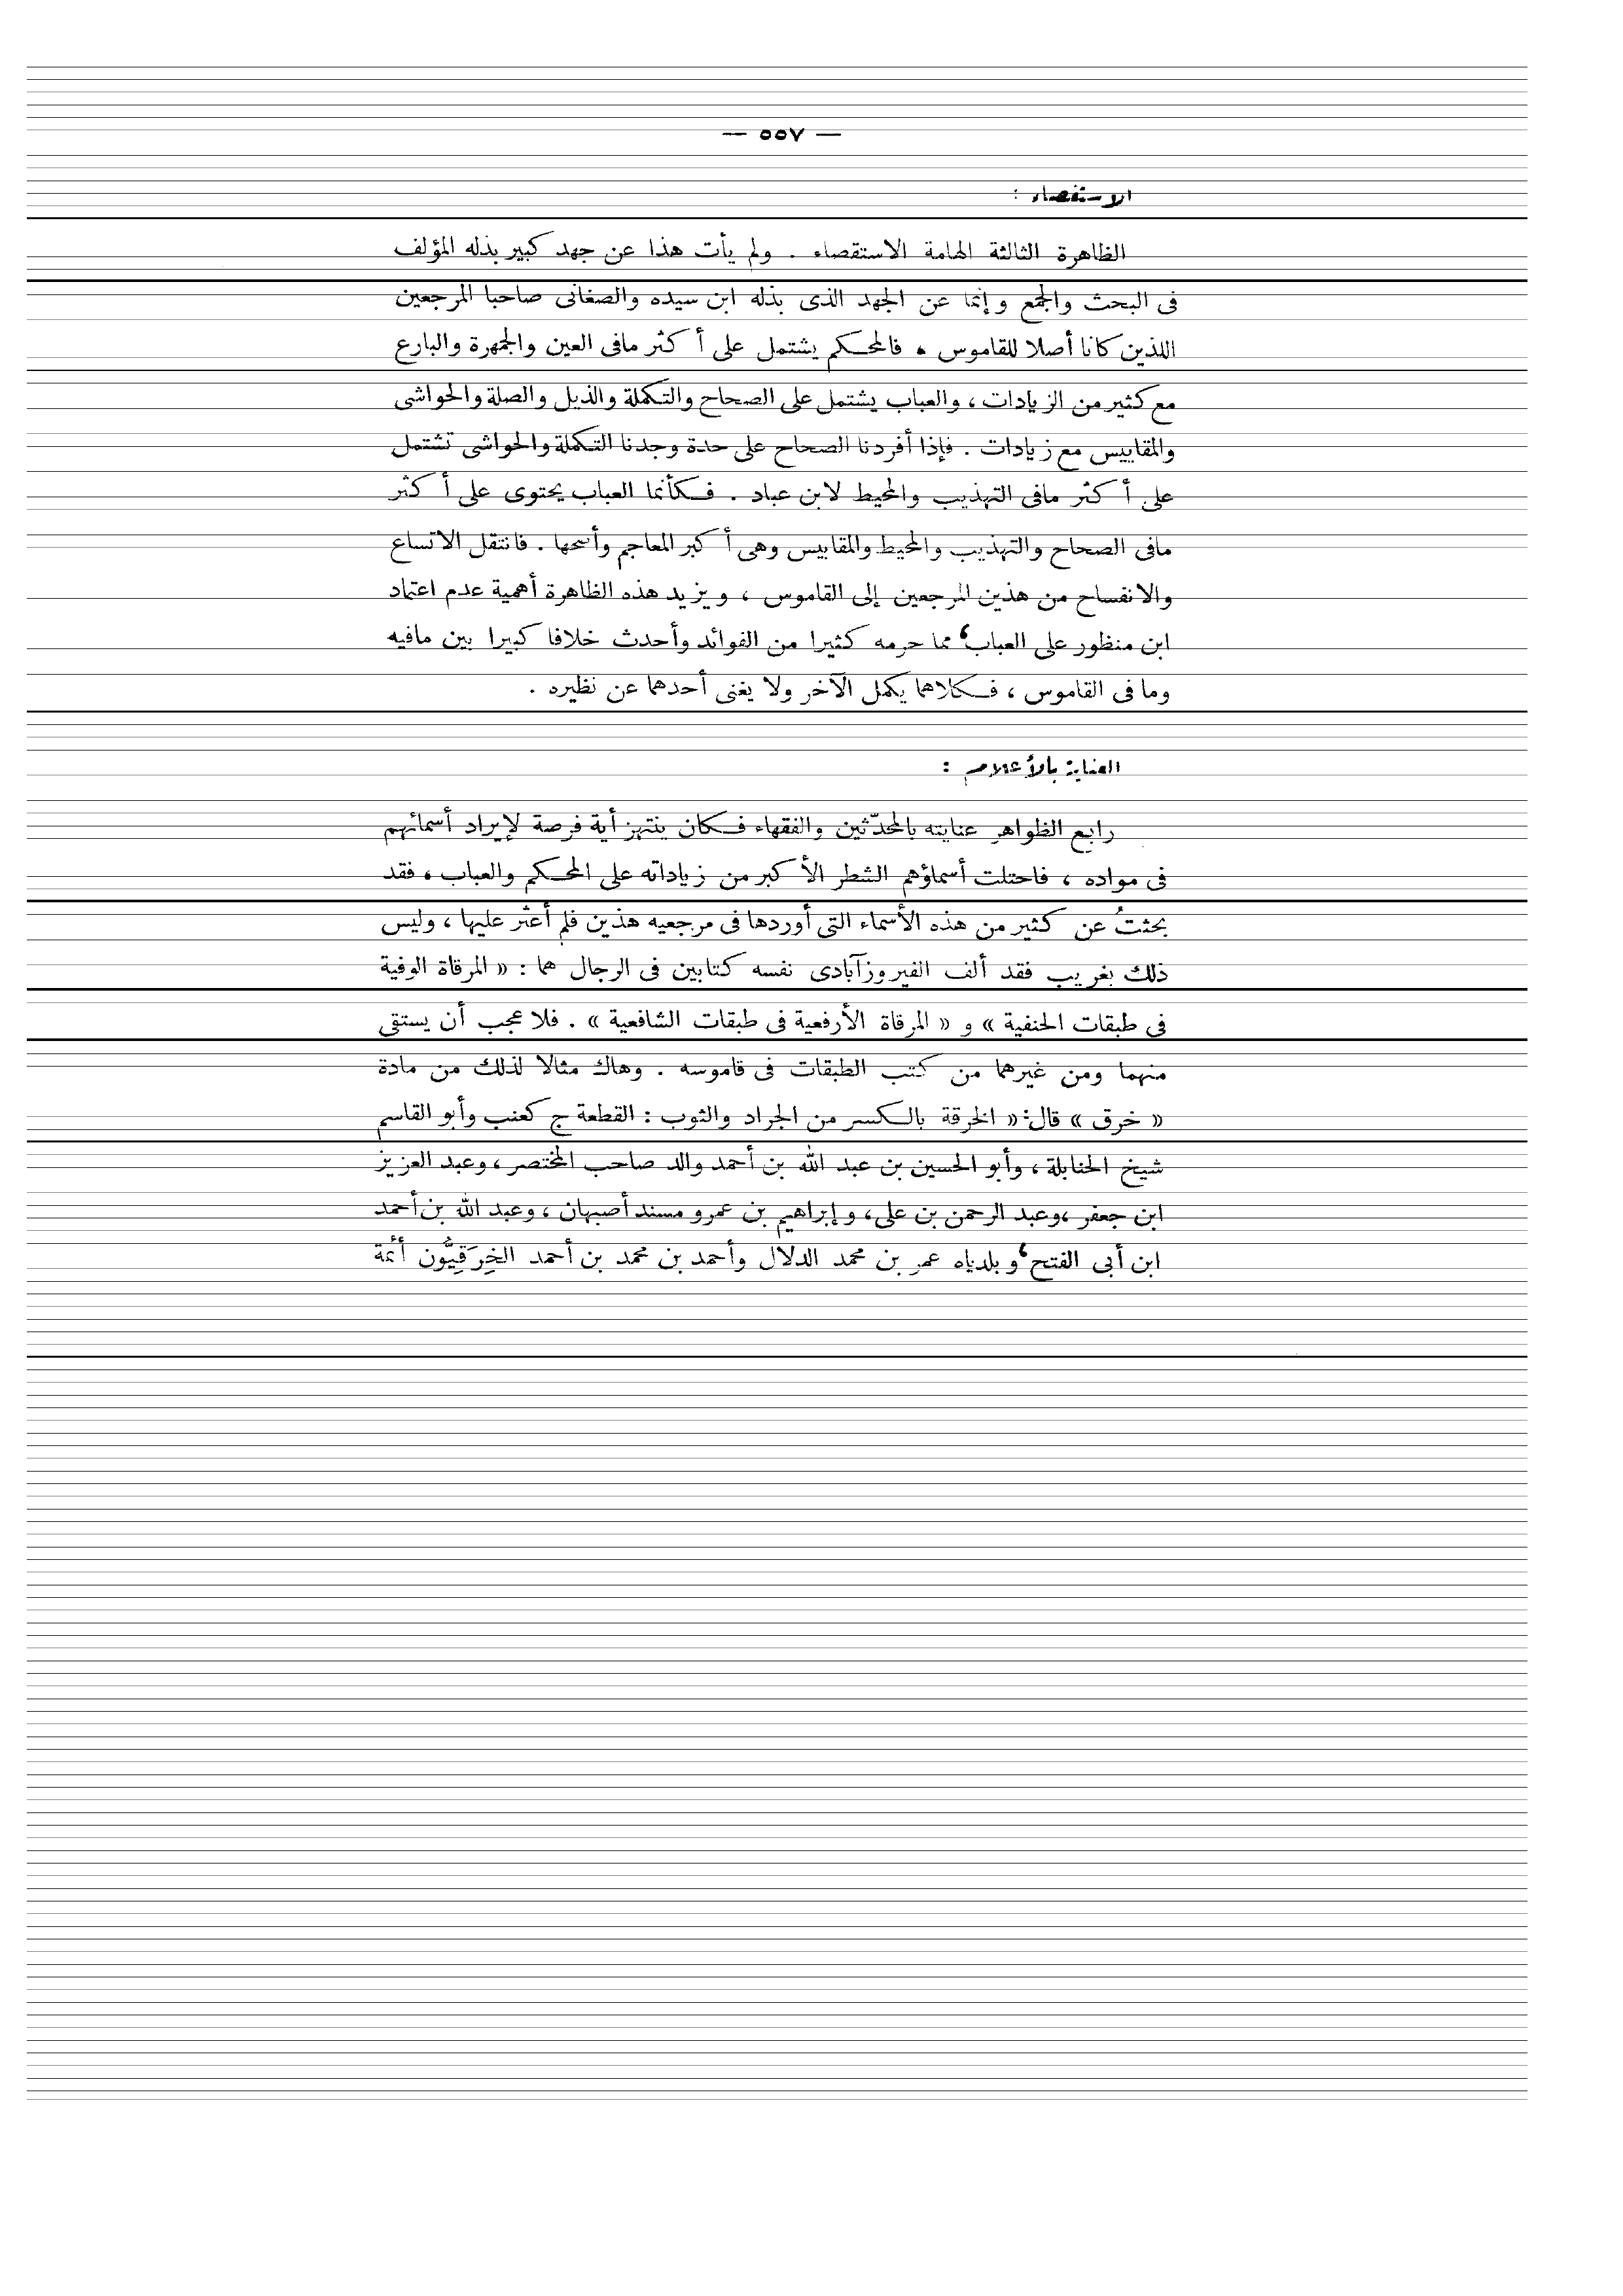 — ٥٥٧ —
الاستقصاء :
الظاهرة الثالثة الهامة الاستقصاء . ولم يأت هذا عن جهد كبير بذله المؤلف
فى البحث والجمع وإنما عن الجهد الذى بذله ابن سيده والصغانى صاحبا المرجعين
اللذين كانا أصلا للقاموس ، فالمحكم يشتمل على أكثر مافى العين والجمهرة والبارع
مع كثير من الزيادات ، والعباب يشتمل على الصحاح والتكملة والذيل والصلة والحواشى
والمقاييس مع زيادات . فإذا أفردنا الصحاح على حدة وجدنا التكملة والحواشى تشتمل
على أكثر مافى التهذيب والمحيط لابن عباد . فكأنما العباب يحتوى على أكثر
مافى الصحاح والتهذيب والمحيط والمقاييس وهى أكبر المعاجم وأصحها . فانتقل الاتساع
والانفساح من هذين المرجعين إلى القاموس ، ويزيد هذه الظاهرة أهمية عدم اعتماد
ابن منظور على العباب، مما حرمه كثيرا من الفوائد وأحدث خلافا كبيرا بين مافيه
وما فى القاموس ، فكلاهما يكمل الآخر ولا يغنى أحدهما عن نظيره .
العناية بالأعلام :
رابع الظواهر عنايته بالمحدّثين والفقهاء فكان ينتهز أية فرصة لإيراد أسمائهم
فى مواده ، فاحتلت أسماؤهم الشطر الأكبر من زياداته على المحكم والعباب ، فقد
بحثتُ عن كثير من هذه الأسماء التى أوردها فى مرجعيه هذين فلم أعثر عليها ، وليس
ذلك بغريب فقد ألف الفيروزآبادى نفسه كتابين فى الرجال هما : « المرقاة الوفية
فى طبقات الحنفية » و « المرقاة الأرفعية فى طبقات الشافعية » . فلا عجب أن يستقى
منهما ومن غيرهما من كتب الطبقات فى قاموسه . وهاك مثالا لذلك من مادة
« خرق » قال: « الخرقة بالكسر من الجراد والثوب : القطعة ج كعنب وأبو القاسم
شيخ الحنابلة ، وأبو الحسين بن عبد الله بن أحمد والد صاحب المختصر ، وعبد العزيز
ابن جعفر ،وعبد الرحمن بن على، وإبراهيم بن عمرو مسند أصبهان ، وعبد الله بن أحمد
ابن أبى الفتح، وبلدياه عمر بن محمد الدلال وأحمد بن محمد بن أحمد الخِرَقِيُّون أئمة